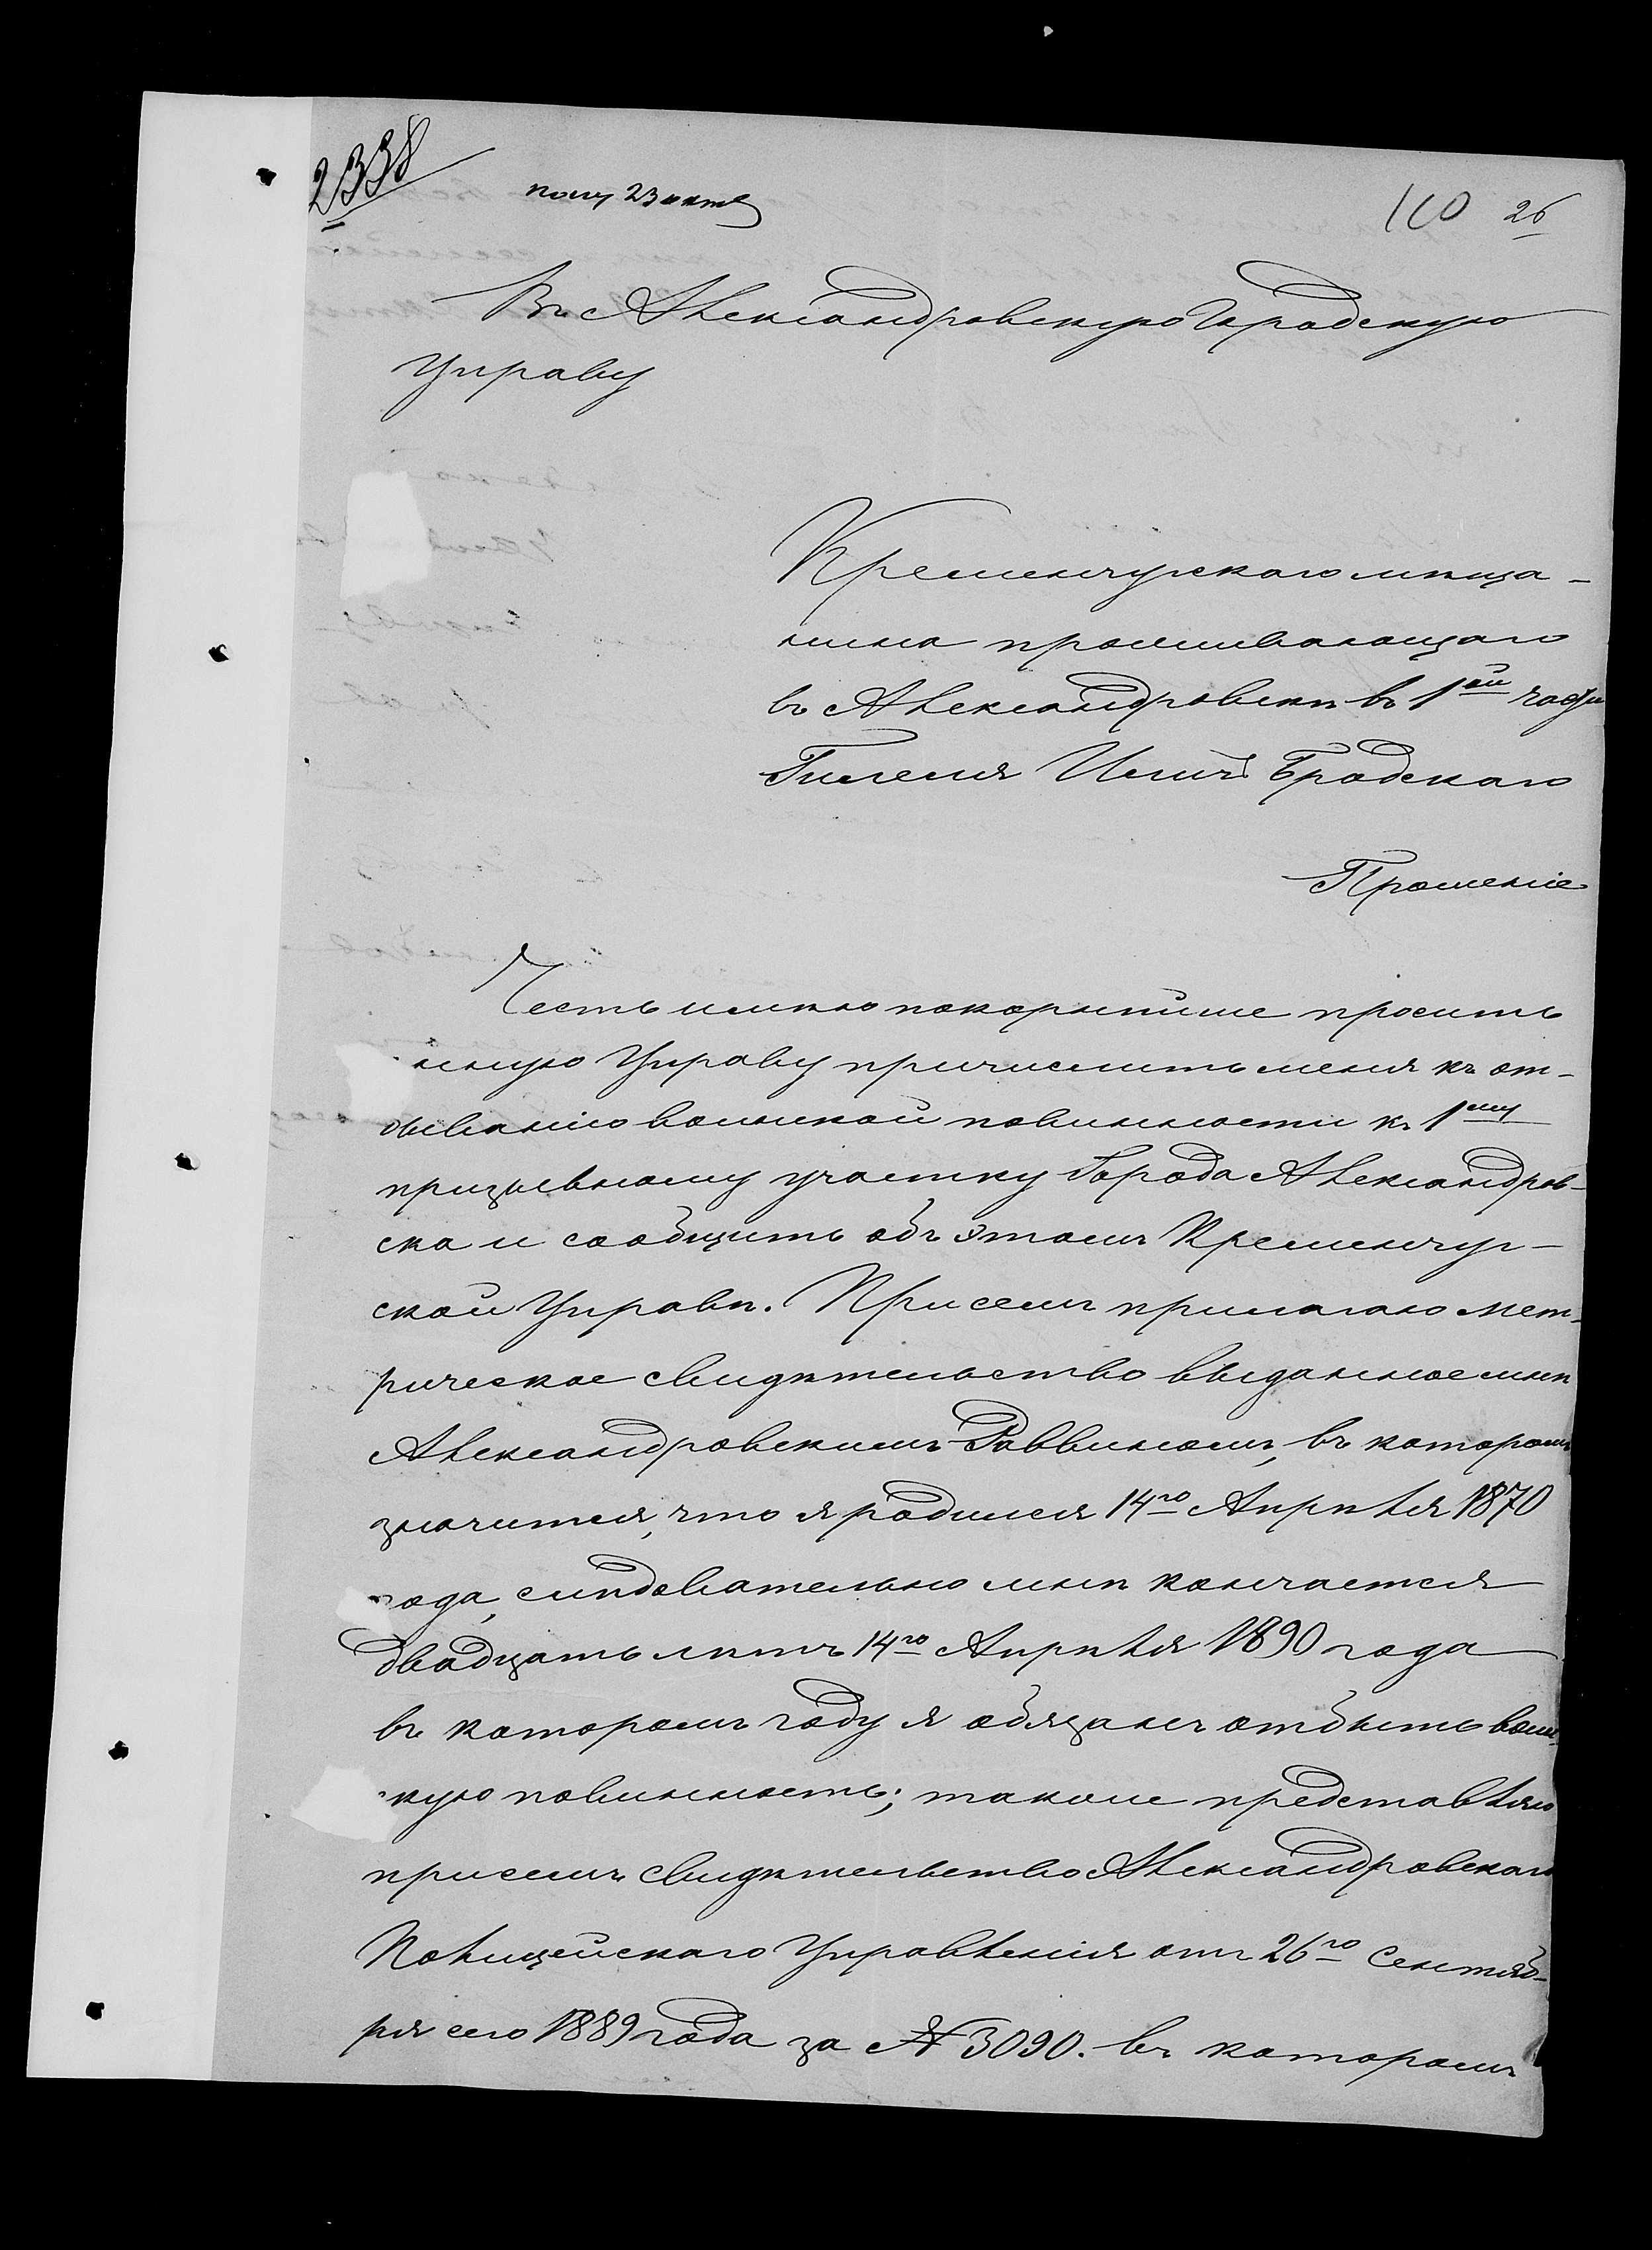 2338
получ 23 октб
110 26
Въ Александровскую Городскую
Управу
Кременчугскаго мѣща-
нина проживающаго
въ Александровскѣ въ 1ой части
Гилеля Бродскаго
Прошеніе
Честь имѣю покорнѣйше просить
Управу причислить меня къ от-
быванію воинской повинности къ 1му
призывному участку Города Александров-
ска и сообщить объ этомъ Кременчуг-
ской Управѣ. При семъ прилагаю мет-
рическое свидѣтельство выданное мнѣ
Александровскимъ Раввиномъ, въ которомъ
значится, что я родился 14го Апрѣля 1870
года, слѣдовательно мнѣ кончается
двадцать лѣтъ 14го Апрѣля 1890 года
въ которомъ году я обязанъ отбыть воин-
скую повинность; также представляю
при семъ свидѣтельство Александровскаго
Полицейскаго Управленія отъ 26го Сентяб-
ря сего 1889 года за № 3090. въ которомъ